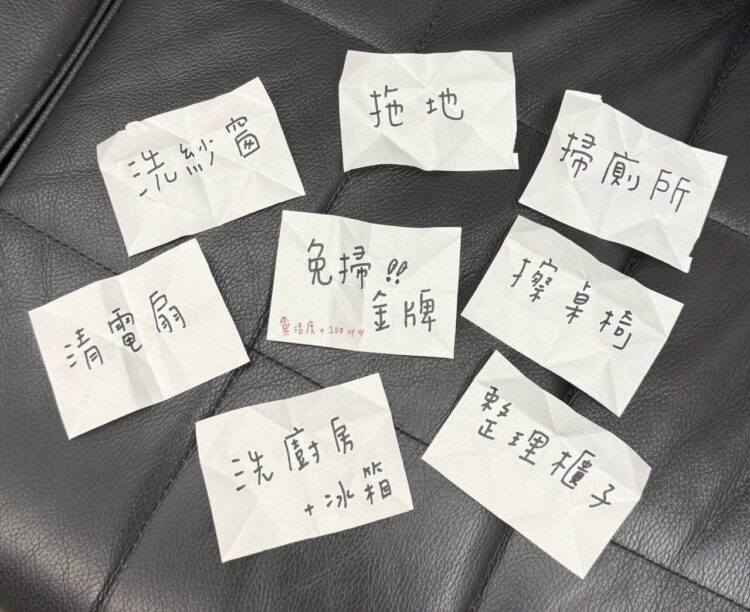 洗紗窗
拖地
掃廁所
免掃!!
金牌
靈活度+100 up up
擦桌椅
清電扇
洗廚房
+冰箱
整理櫃子